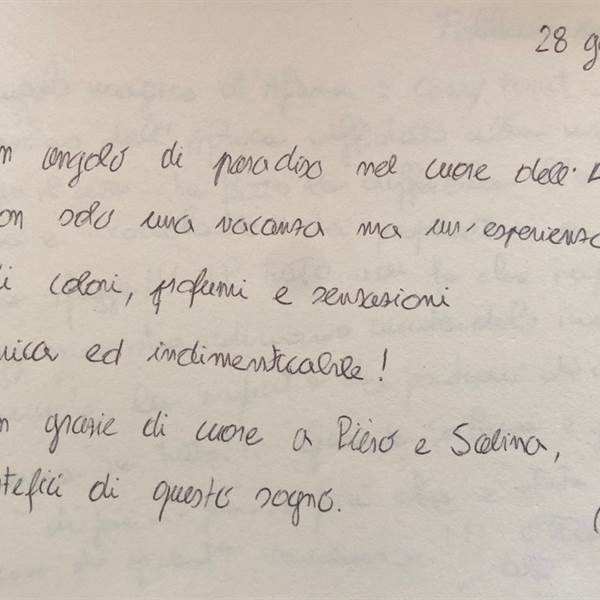 28 g
n angolo di paradiso nel cuore dell'
on solo una vacanza ma un'esperienza
i colori, profumi e sensazioni
nica ed indimenticabile!
n grazie di cuore a Piero e Salima,
tefici di questo sogno.